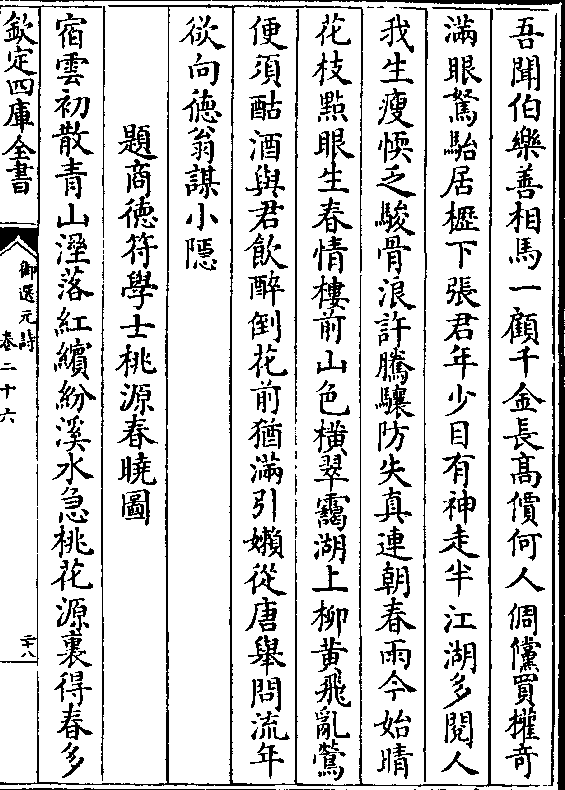 吾聞伯樂善相馬一顧千金長髙價何人倜儻買權竒
滿眼駑駘居櫪下張君年少目有神走半江湖多閱人
我生瘦愞乏駿骨浪許騰驤防失真連朝春雨今始晴
花枝㸃眼生春情樓前山色橫翠靄湖上柳黄飛亂鶯
便須酤酒與君飲醉倒花前猶滿引嬾從唐舉問流年
欲向德翁謀小隱
題商德符學士桃源春曉圖
宿雲初散青山溼落紅繽紛溪水急桃花源裏得春多
欽定四庫全書
御選元詩
卷二十六
二十八